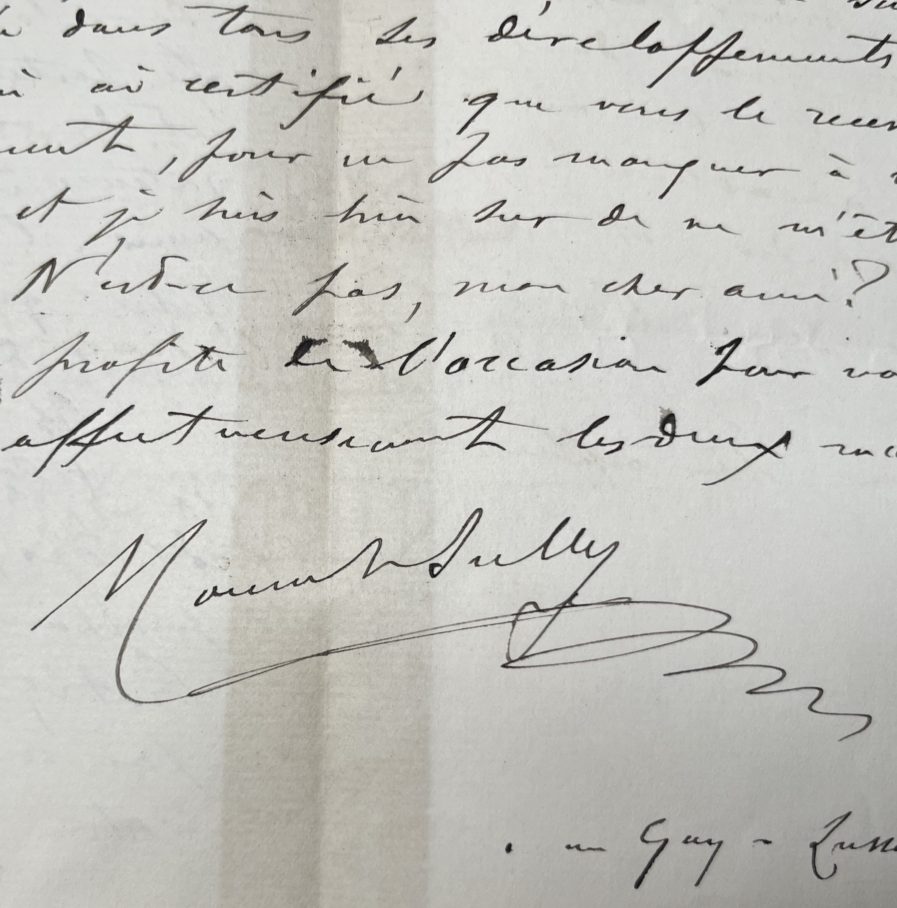 dans tous ses développements
ai certifié que vous le
, pour ne pas manquer à
et je suis bien sur de ne m'êt
N'est-ce pas, mon cher ami?
profite de l'occasion pour vo
affectueusement les deux ma
Mounet Sully
Gay-Luss